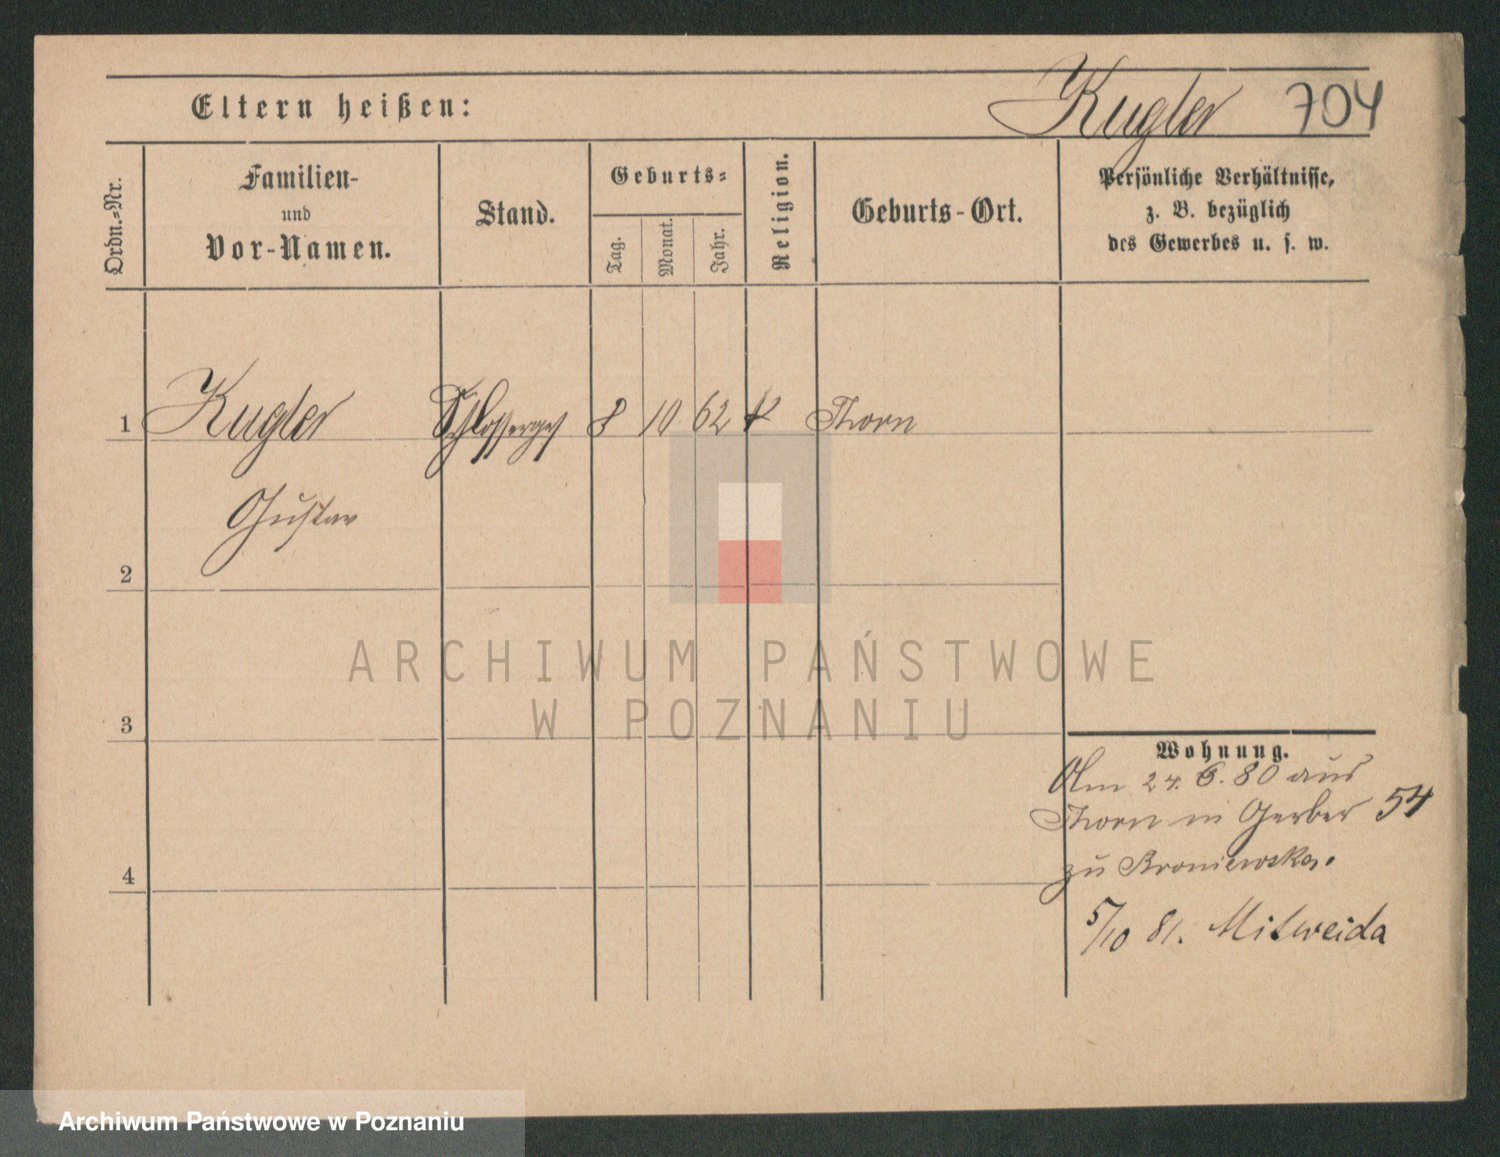 Eltern heißen:
Kugler 704
Ordn.=Nr.
Familien-
und
Vor-Namen.
Stand.
Geburts=
Tag.
Monat.
Jahr.
Religion.
Geburts-Ort.
Persönliche Verhältnisse,
z. B. bezüglich
des Gewerbes u. s. w.
1 Kugler Schlosserges 8 10 62 k Thorn
Gustav
2
3
4
Wohnung.
Am 24. 6. 80 aus
Thorn in Gerber 54
zu Broniewska.
5/10 81. Mitweida
ARCHIWUM PAŃSTWOWE
W POZNANIU
Archiwum Państwowe w Poznaniu